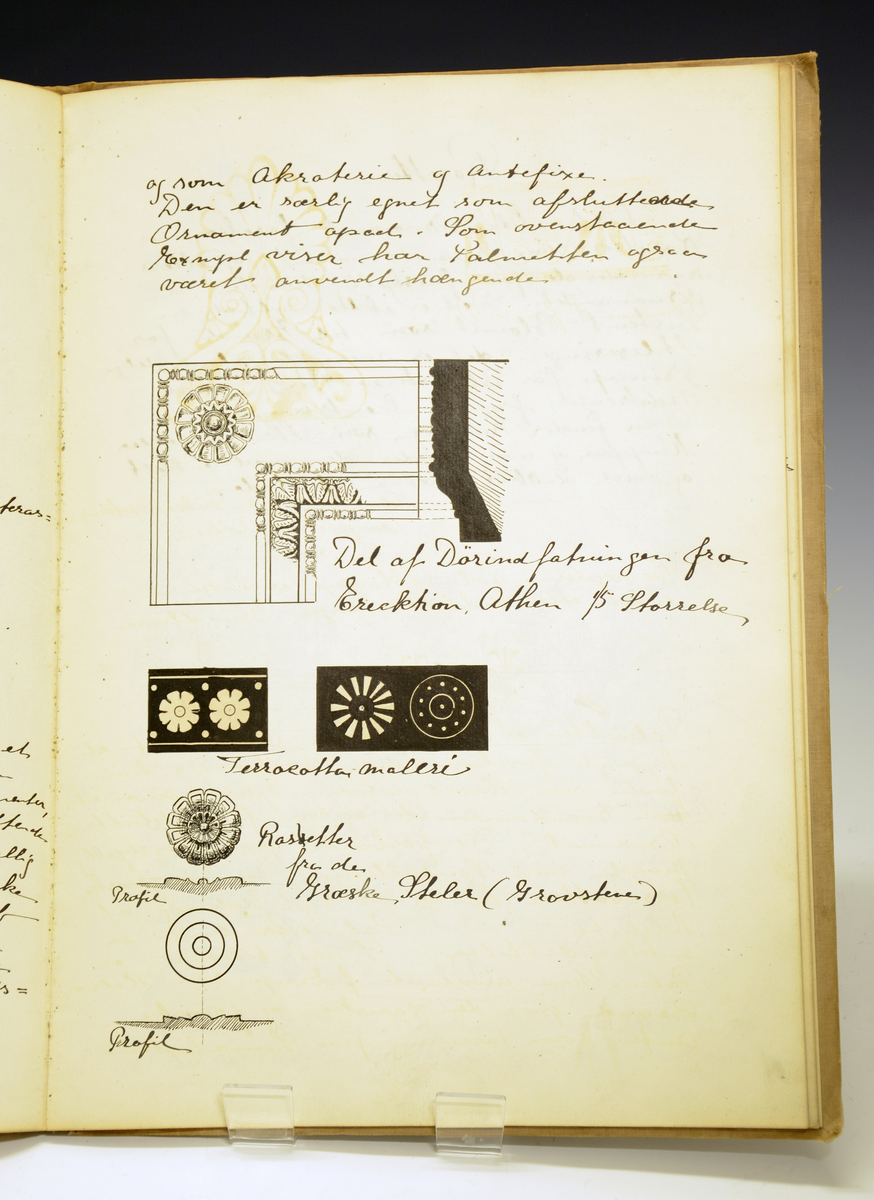 og som Akroterie og Antefixe.
Den er særlig egnet som afsluttende
Ornament opad. Som ovenstaaende
Exempl viser har Palmetten ogsaa
været anvendt hængende
Del af Dörindfatningen fra
Erecktion, Athen 1/5 Storrelse
Terracotta malleri
Rossetter
fra de
Græske Steler (Gravstene)
Profil
Profil
teras=
et